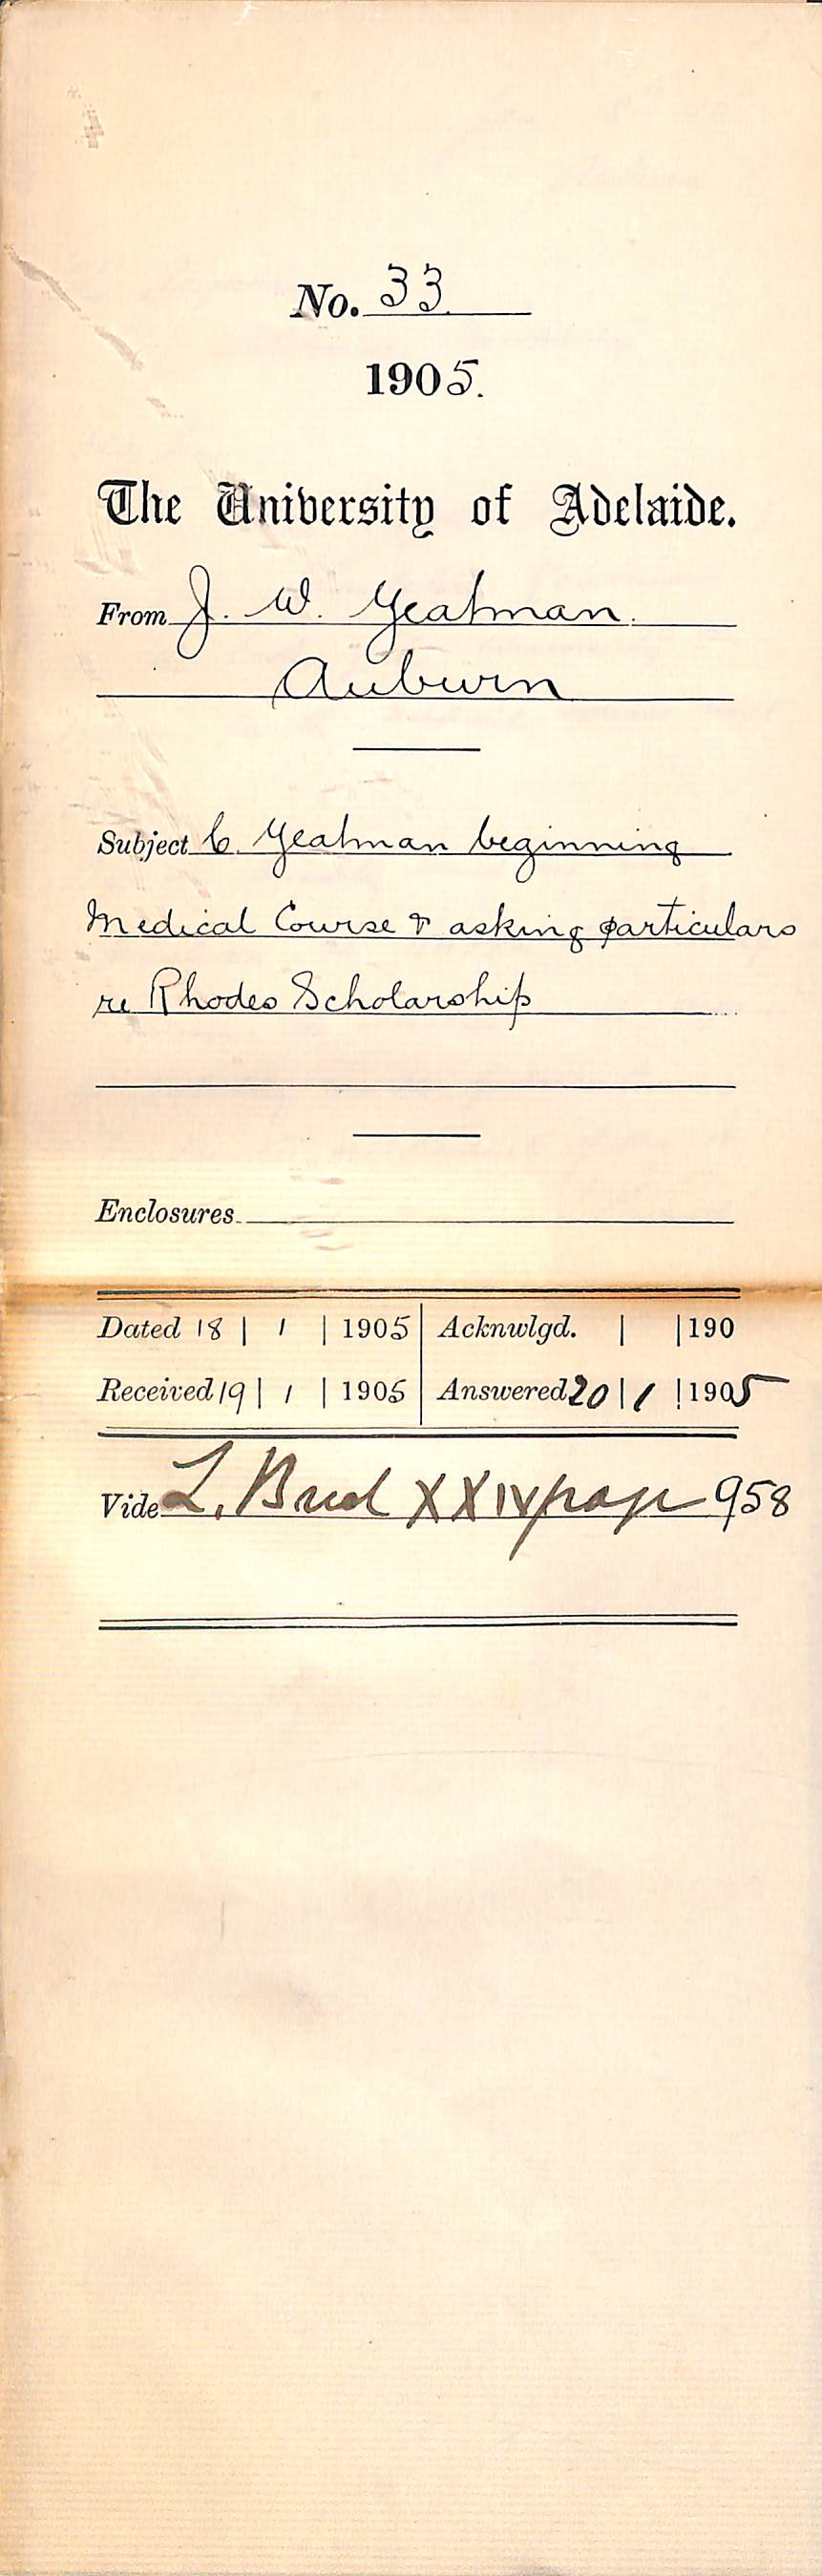 No. 33.
1905.
The University of Adelaide.
From J. W. Yeatman.
Auburn
Subject C. Yeatman beginning
Medical Course & asking particulars
re Rhodes Scholarship
Enclosures
Dated 18 | 1 | 1905 | Acknwlgd. | | 190
Received 19 | 1 | 1905 | Answered 20 | 1 | 1905
Vide L. XXIV page 958